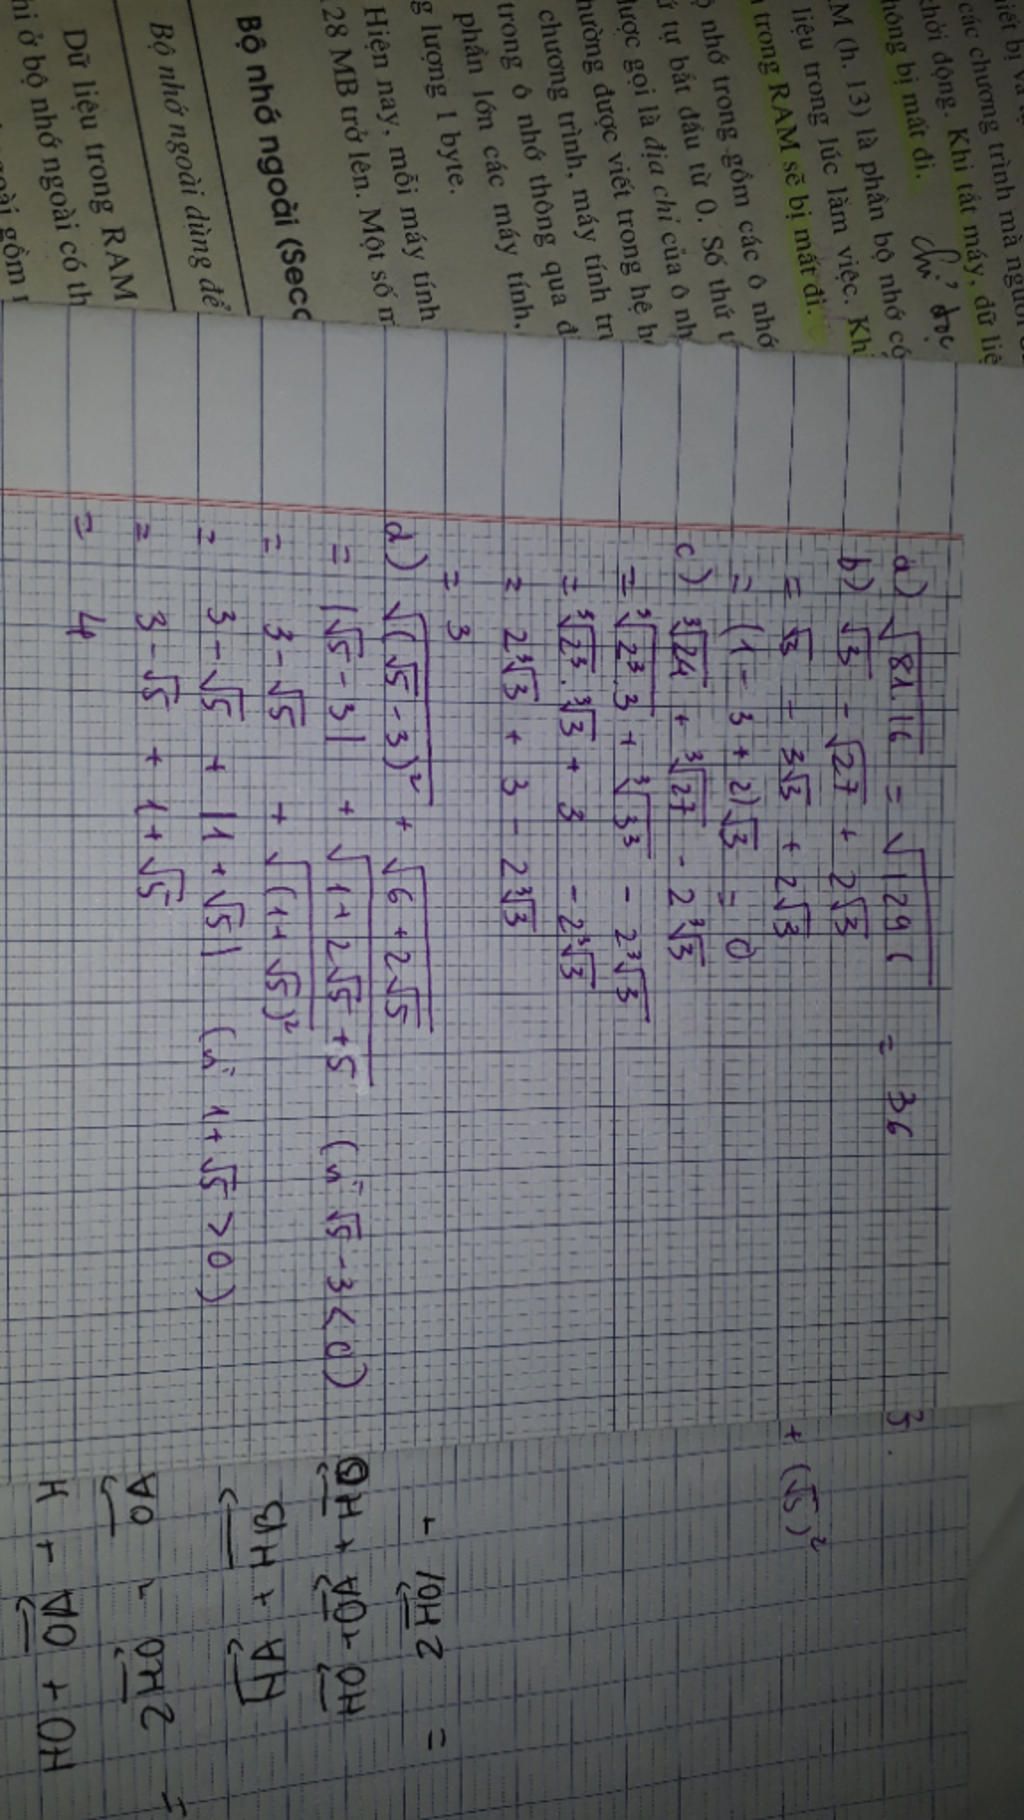 các chương trình mà người
khởi động. Khi tắt máy, dữ liệ
không bị mất đi.
Chỉ đọc
(h. 13) là phần bộ nhớ có
liệu trong lúc làm việc. Khi
trong RAM sẽ bị mất đi.
nhớ trong gồm các ô nhớ
tự bắt đầu từ 0. Số thứ t
được gọi là địa chỉ của ô nh
thường được viết trong hệ h
chương trình, máy tính tru
trong ô nhớ thông qua đ
phần lớn các máy tính,
g lượng 1 byte.
Hiện nay, mỗi máy tính
128 MB trở lên. Một số m
Bộ nhớ ngoài (Seco
Bộ nhớ ngoài dùng để
Dữ liệu trong RAM
hi ở bộ nhớ ngoài có th
a) √81.16 = √1296 = 36
b) √3 - √27 + 2√3
= √3 - 3√3 + 2√3
= (1 - 3 + 2)√3 = 0
c) ∛24 + ∛27 - 2∛3
= ∛2³.3 + ∛3³ - 2∛3
= ∛2³.∛3 + 3 - 2∛3
= 2∛3 + 3 - 2∛3
= 3
d) √(√5 - 3)² + √6 + 2√5
= |√5 - 3| + √1 + 2√5 + 5 (vì √5 - 3 < 0)
= 3 - √5 + √(1 + √5)²
= 3 - √5 + |1 + √5| (vì 1 + √5 > 0)
= 3 - √5 + 1 + √5
= 4
+ (√5)²